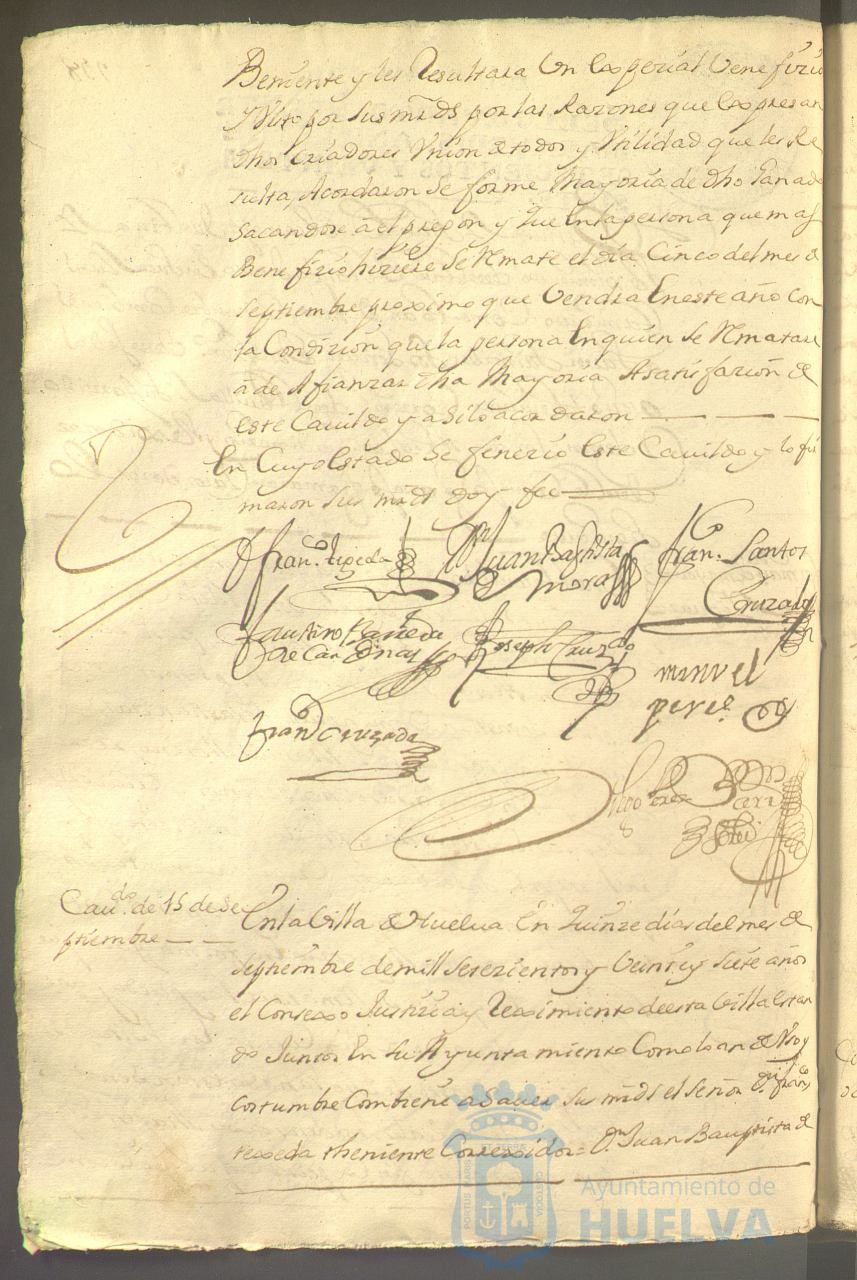 Beniente y les Resultara Un Expecial Venefizio
Y Visto por Sus mrds por las Razones que Expresan
dhos Criadores Union de todos y Utilidad que les Re
sulta, Acordaron Se forme Mayoria de dho Ganado
Sacandose a el pregon y Que En la persona que mas
Benefizio hiziere Se Remate el dia Cinco del mes de
Septiembre proximo que Vendra En este año con
la Condizion que la persona En quien Se Rematare
a de Afianzar dha Mayoria A satisfazion de
este Cavildo y asi lo acordaron
En Cuyo Estado Se fenezio Este Cavildo y lo fir
maron Sus mrds doy fee
Fran.co tejeda
Dn Juan Baptista
Mora
Fran.co Santos
Cruzado
Faustino Barreda
de Cardenas
Joseph Cruzado
manuel
pere.s
Fran.co Cruzado
Cau.do de 15 de Se
ptiembre
En la Villa de Huelua En Quinze dias del mes de
Septiembre de mill Setezientos y Veinte y Siete años
el Consexo Justizia y Reximiento de esta Villa Estan
do Juntos En Su Ayuntamiento Como lo an de Vso y
costumbre Combiene a Saver Sus mrds el Señor Dn fran.co
texeda theniente Correxidor = Dn Juan Bauptista de
PORTUS MARIS
CUSTODIA
Ayuntamiento de
HUELVA